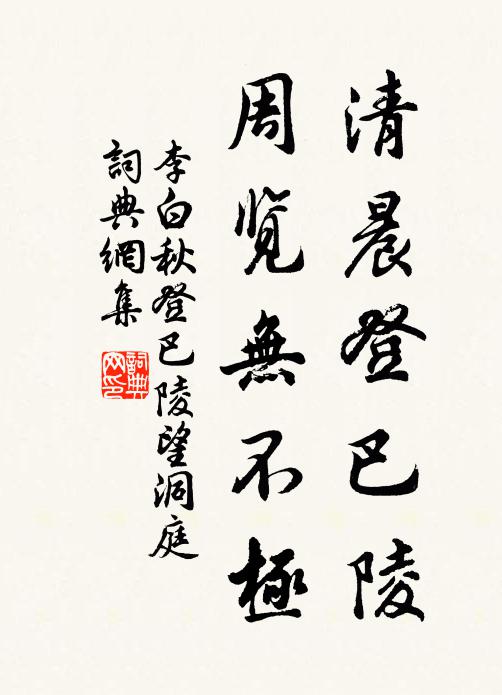 清晨登巴陵
周覧無不極
李白秋登巴陵望洞庭
詞典網集
詞典
网印